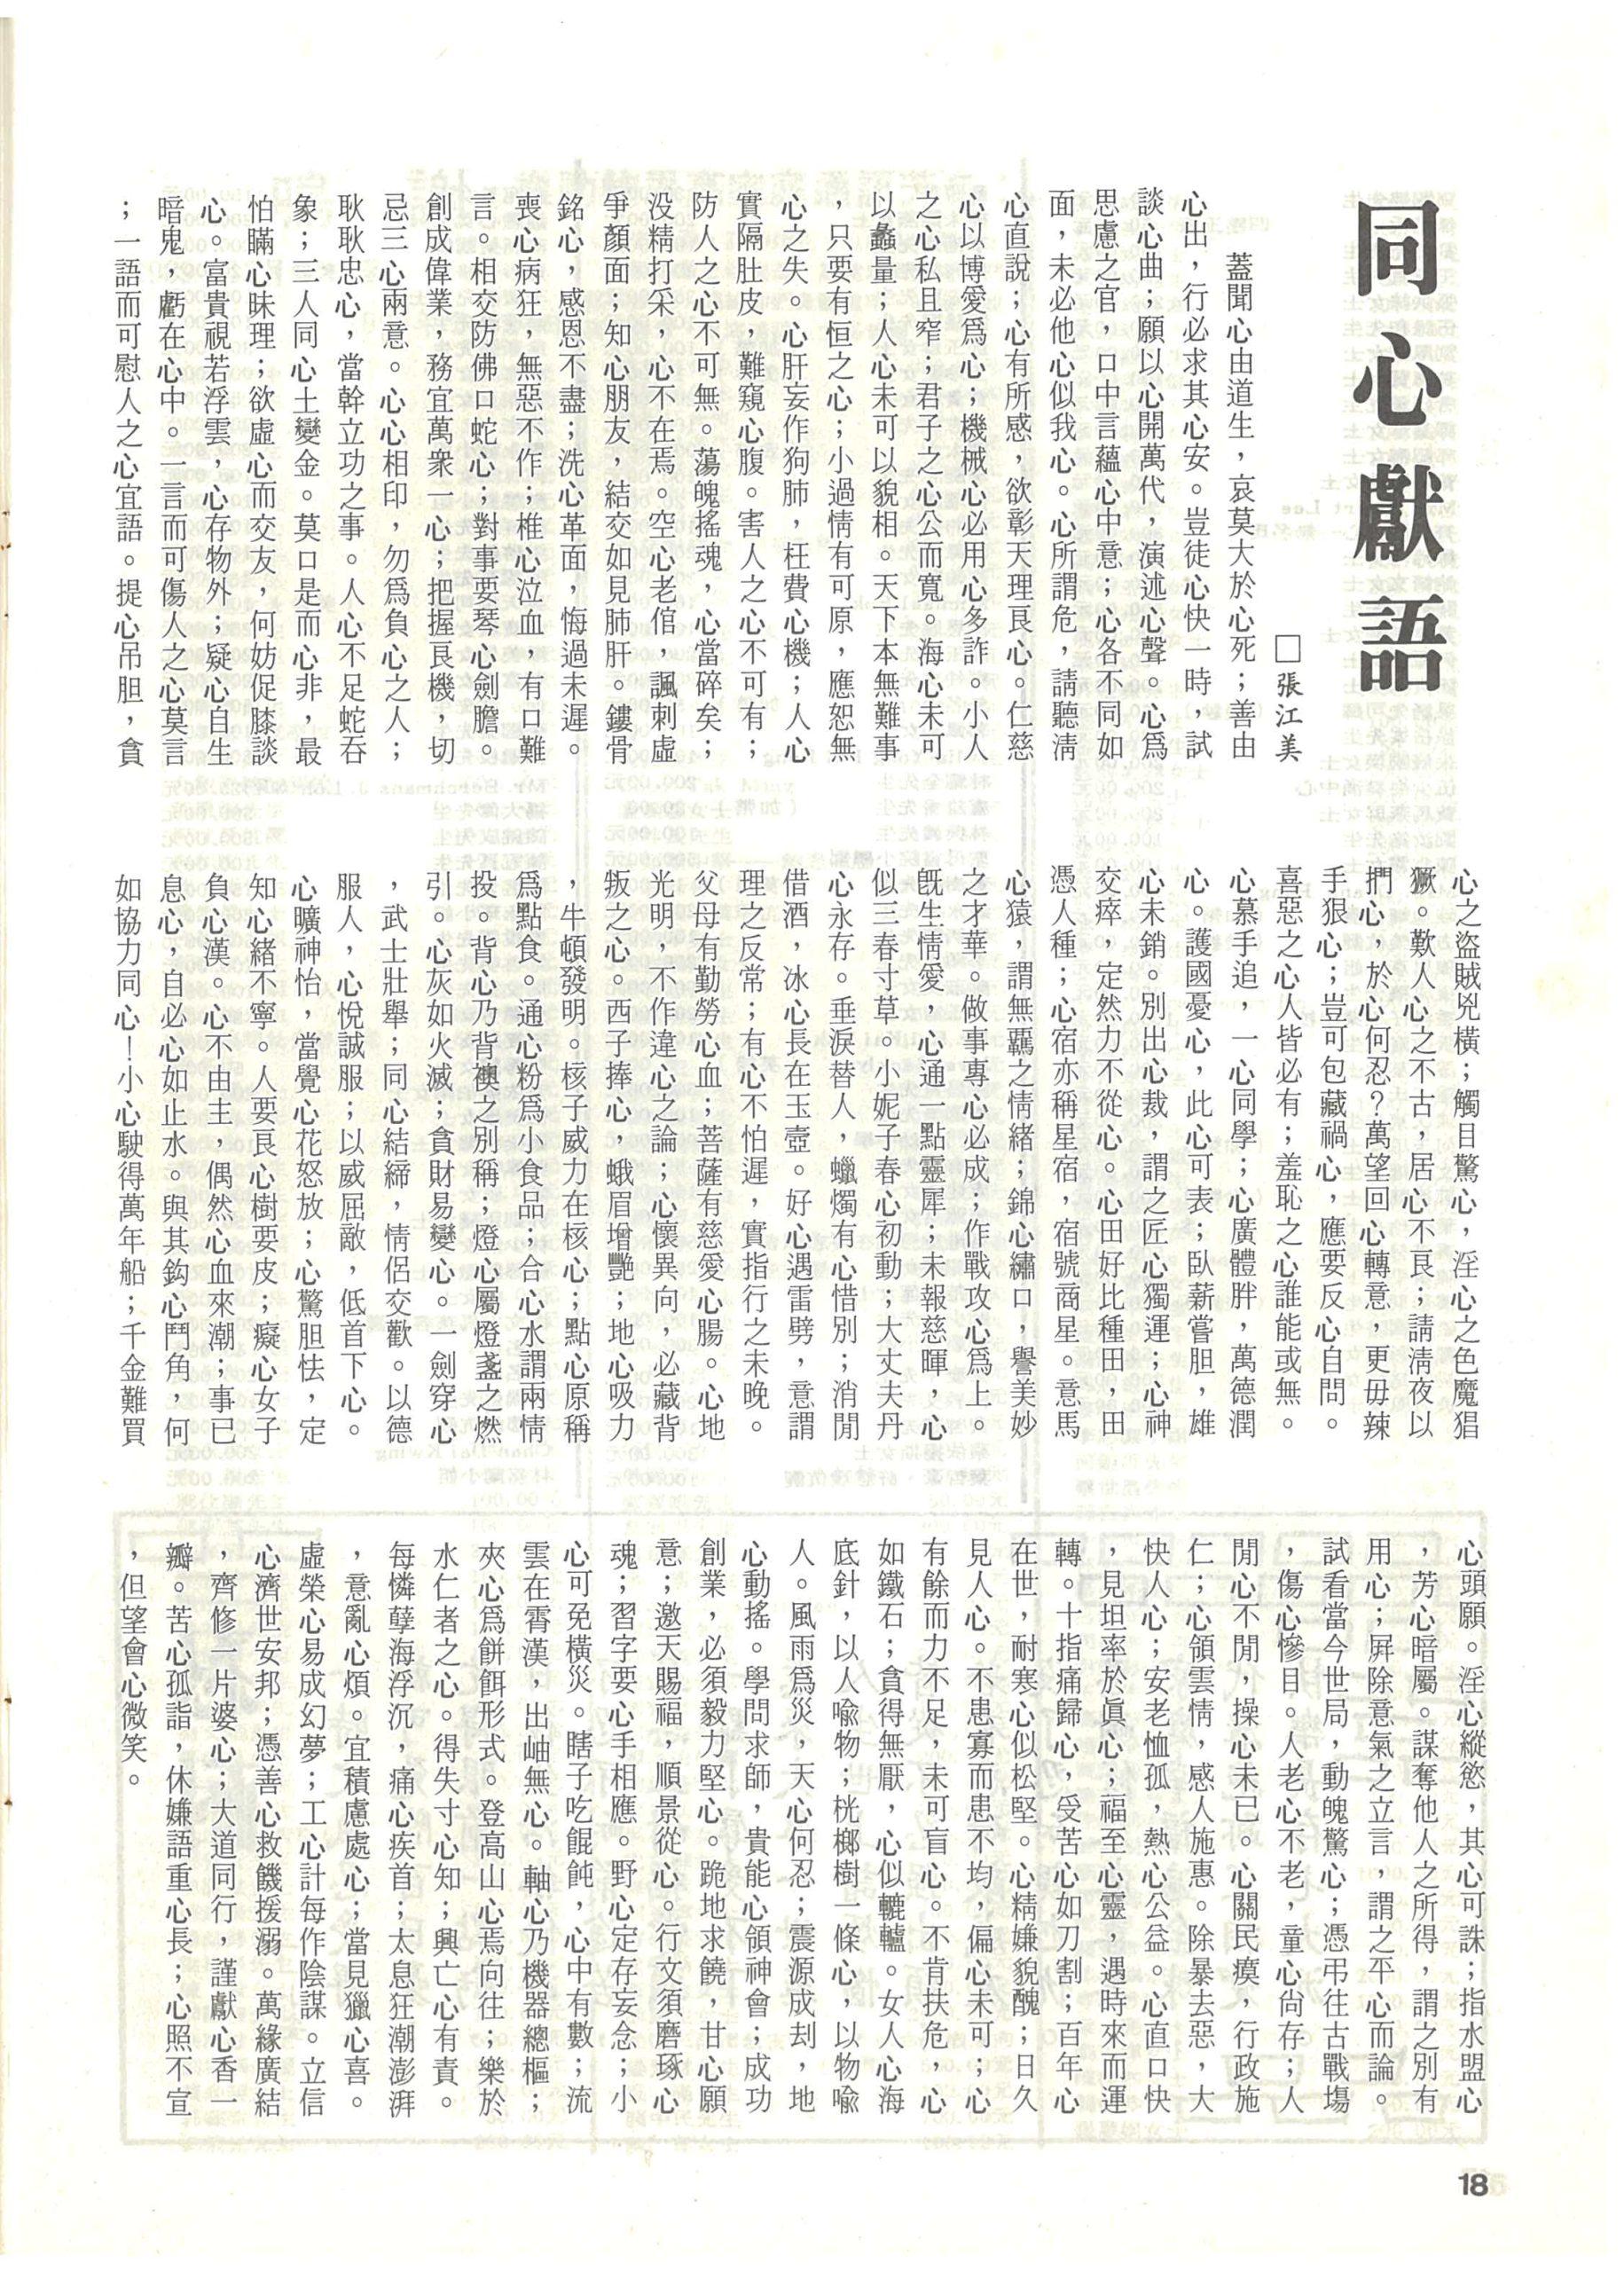 同心獻語
□張江美
蓋聞心由道生，哀莫大於心死；善由
心出，行必求其心安。豈徒心快一時，試
談心曲；願以心開萬代，演述心聲。心爲
思慮之官，口中言蘊心中意；心各不同如
面，未必他心似我心。心所謂危，請聽淸
心直說；心有所感，欲彰天理良心。仁慈
心以博愛爲心；機械心必用心多詐。小人
之心私且窄；君子之心公而寬。海心未可
以蠡量；人心未可以貌相。天下本無難事
，只要有恒之心；小過情有可原，應恕無
心之失。心肝妄作狗肺，枉費心機；人心
實隔肚皮，難窺心腹。害人之心不可有；
防人之心不可無。蕩魄搖魂，心當碎矣；
没精打采，心不在焉。空心老倌，諷刺虛
爭顏面；知心朋友，結交如見肺肝。鏤骨
銘心，感恩不盡；洗心革面，悔過未遲。
喪心病狂，無惡不作；椎心泣血，有口難
言。相交防佛口蛇心；對事要琴心劍膽。
創成偉業，務宜萬衆一心；把握良機，切
忌三心兩意。心心相印，勿爲負心之人；
耿耿忠心，當幹立功之事。人心不足蛇吞
象；三人同心土變金。莫口是而心非，最
怕瞞心昧理；欲虛心而交友，何妨促膝談
心。富貴視若浮雲，心存物外；疑心自生
暗鬼，虧在心中。一言而可傷人之心莫言
；一語而可慰人之心宜語。提心吊胆，貪
心之盜賊兇橫；觸目驚心，淫心之色魔猖
獗。歎人心之不古，居心不良；請淸夜以
捫心，於心何忍？萬望回心轉意，更毋辣
手狠心；豈可包藏禍心，應要反心自問。
喜惡之心人皆必有；羞恥之心誰能或無。
心慕手追，一心同學；心廣體胖，萬德潤
心。護國憂心，此心可表；臥薪嘗胆，雄
心未銷。別出心裁，謂之匠心獨運；心神
交瘁，定然力不從心。心田好比種田，田
憑人種；心宿亦稱星宿，宿號商星。意馬
心猿，謂無羈之情緒；錦心繡口，譽美妙
之才華。做事專心必成；作戰攻心爲上。
旣生情愛，心通一點靈犀；未報慈暉，心
似三春寸草。小妮子春心初動；大丈夫丹
心永存。垂淚替人，蠟燭有心惜別；消閒
借酒，冰心長在玉壺。好心遇雷劈，意謂
理之反常；有心不怕遲，實指行之未晚。
父母有勤勞心血；菩薩有慈愛心腸。心地
光明，不作違心之論；心懷異向，必藏背
叛之心。西子捧心，蛾眉增艷；地心吸力
，牛頓發明。核子威力在核心；點心原稱
爲點食。通心粉爲小食品；合心水謂兩情
投。背心乃背襖之別稱；燈心屬燈盞之燃
引。心灰如火滅；貪財易變心。一劍穿心
，武士壯舉；同心結締，情侶交歡。以德
服人，心悅誠服；以威屈敵，低首下心。
心曠神怡，當覺心花怒放；心驚胆怯，定
知心緒不寧。人要良心樹要皮；癡心女子
負心漢。心不由主，偶然心血來潮；事已
息心，自必心如止水。與其鈎心鬥角，何
如協力同心！小心駛得萬年船；千金難買
心頭願。淫心縱慾，其心可誅；指水盟心
，芳心暗屬。謀奪他人之所得，謂之別有
用心；屛除意氣之立言，謂之平心而論。
試看當今世局，動魄驚心；憑弔往古戰塲
，傷心慘目。人老心不老，童心尙存；人
閒心不閒，操心未已。心關民瘼，行政施
仁；心領雲情，感人施惠。除暴去惡，大
快人心；安老恤孤，熱心公益。心直口快
，見坦率於眞心；福至心靈，遇時來而運
轉。十指痛歸心，受苦心如刀割；百年心
在世，耐寒心似松堅。心精嫌貌醜；日久
見人心。不患寡而患不均，偏心未可；心
有餘而力不足，未可盲心。不肯扶危，心
如鐵石；貪得無厭，心似轆轤。女人心海
底針，以人喩物；桄榔樹一條心，以物喩
人。風雨爲災，天心何忍；震源成刦，地
心動搖。學問求師，貴能心領神會；成功
創業，必須毅力堅心。跪地求饒，甘心願
意；邀天賜福，順景從心。行文須磨琢心
魂；習字要心手相應。野心定存妄念；小
心可免橫災。瞎子吃餛飩，心中有數；流
雲在霄漢，出岫無心。軸心乃機器總樞；
夾心爲餅餌形式。登高山心焉向往；樂於
水仁者之心。得失寸心知；興亡心有責。
每憐孽海浮沉，痛心疾首；太息狂潮澎湃
，意亂心煩。宜積慮處心；當見獵心喜。
虛榮心易成幻夢；工心計每作陰謀。立信
心濟世安邦；憑善心救饑援溺。萬緣廣結
，齊修一片婆心；大道同行，謹獻心香一
瓣。苦心孤詣，休嫌語重心長；心照不宣
，但望會心微笑。
18